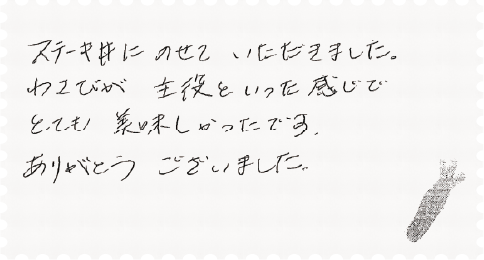 ステーキ丼にのせていただきました。
わさびが 主役といった感じで
とても 美味しかったです。
ありがとう ございました。